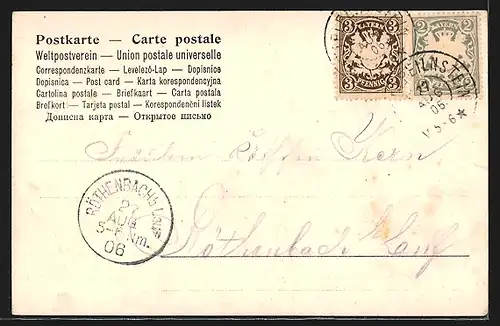 Postkarte — Carte postale
Weltpostverein — Union postale universelle
Correspondenzkarte — Levelező-Lap — Dopisnice
Dopisnica — Post card — Karta korespondencyjna
Cartolina postale — Briefkaart — Carta postala
Brefkort — Tarjeta postal — Korespondenční listek
Дописна карта — Открытое письмо
BAYERN
3 3
PFENNIG
BAYERN
2 2
27
AUG
06.
5-6
Fräulein Kern
Röthenbach Lauf
RÖTHENBACH b. Lauf
27
AUG
5-6 Nm.
06